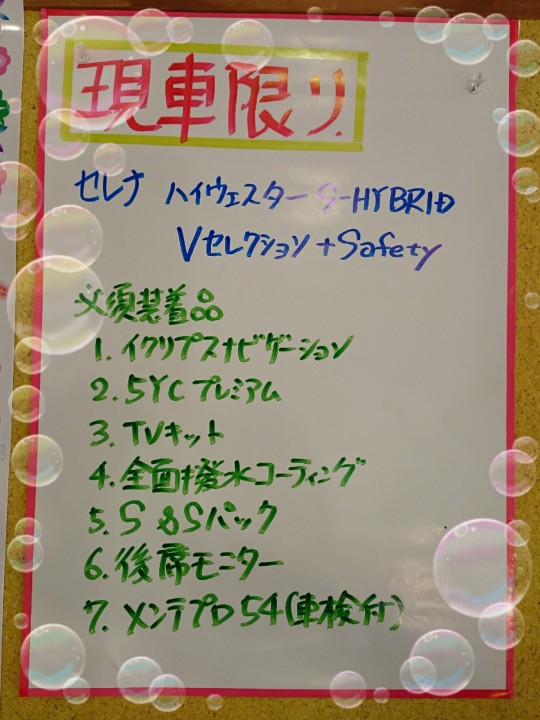 現車限り
セレナ ハイウェスター S-HYBRID
Vセレクション+Safety
必須装着品
1.イクリプスナビゲーション
2.5YCプレミアム
3.TVキット
4.全面撥水コーティング
5.S&Sパック
6.後席モニター
7.メンテプロ54(車検付)